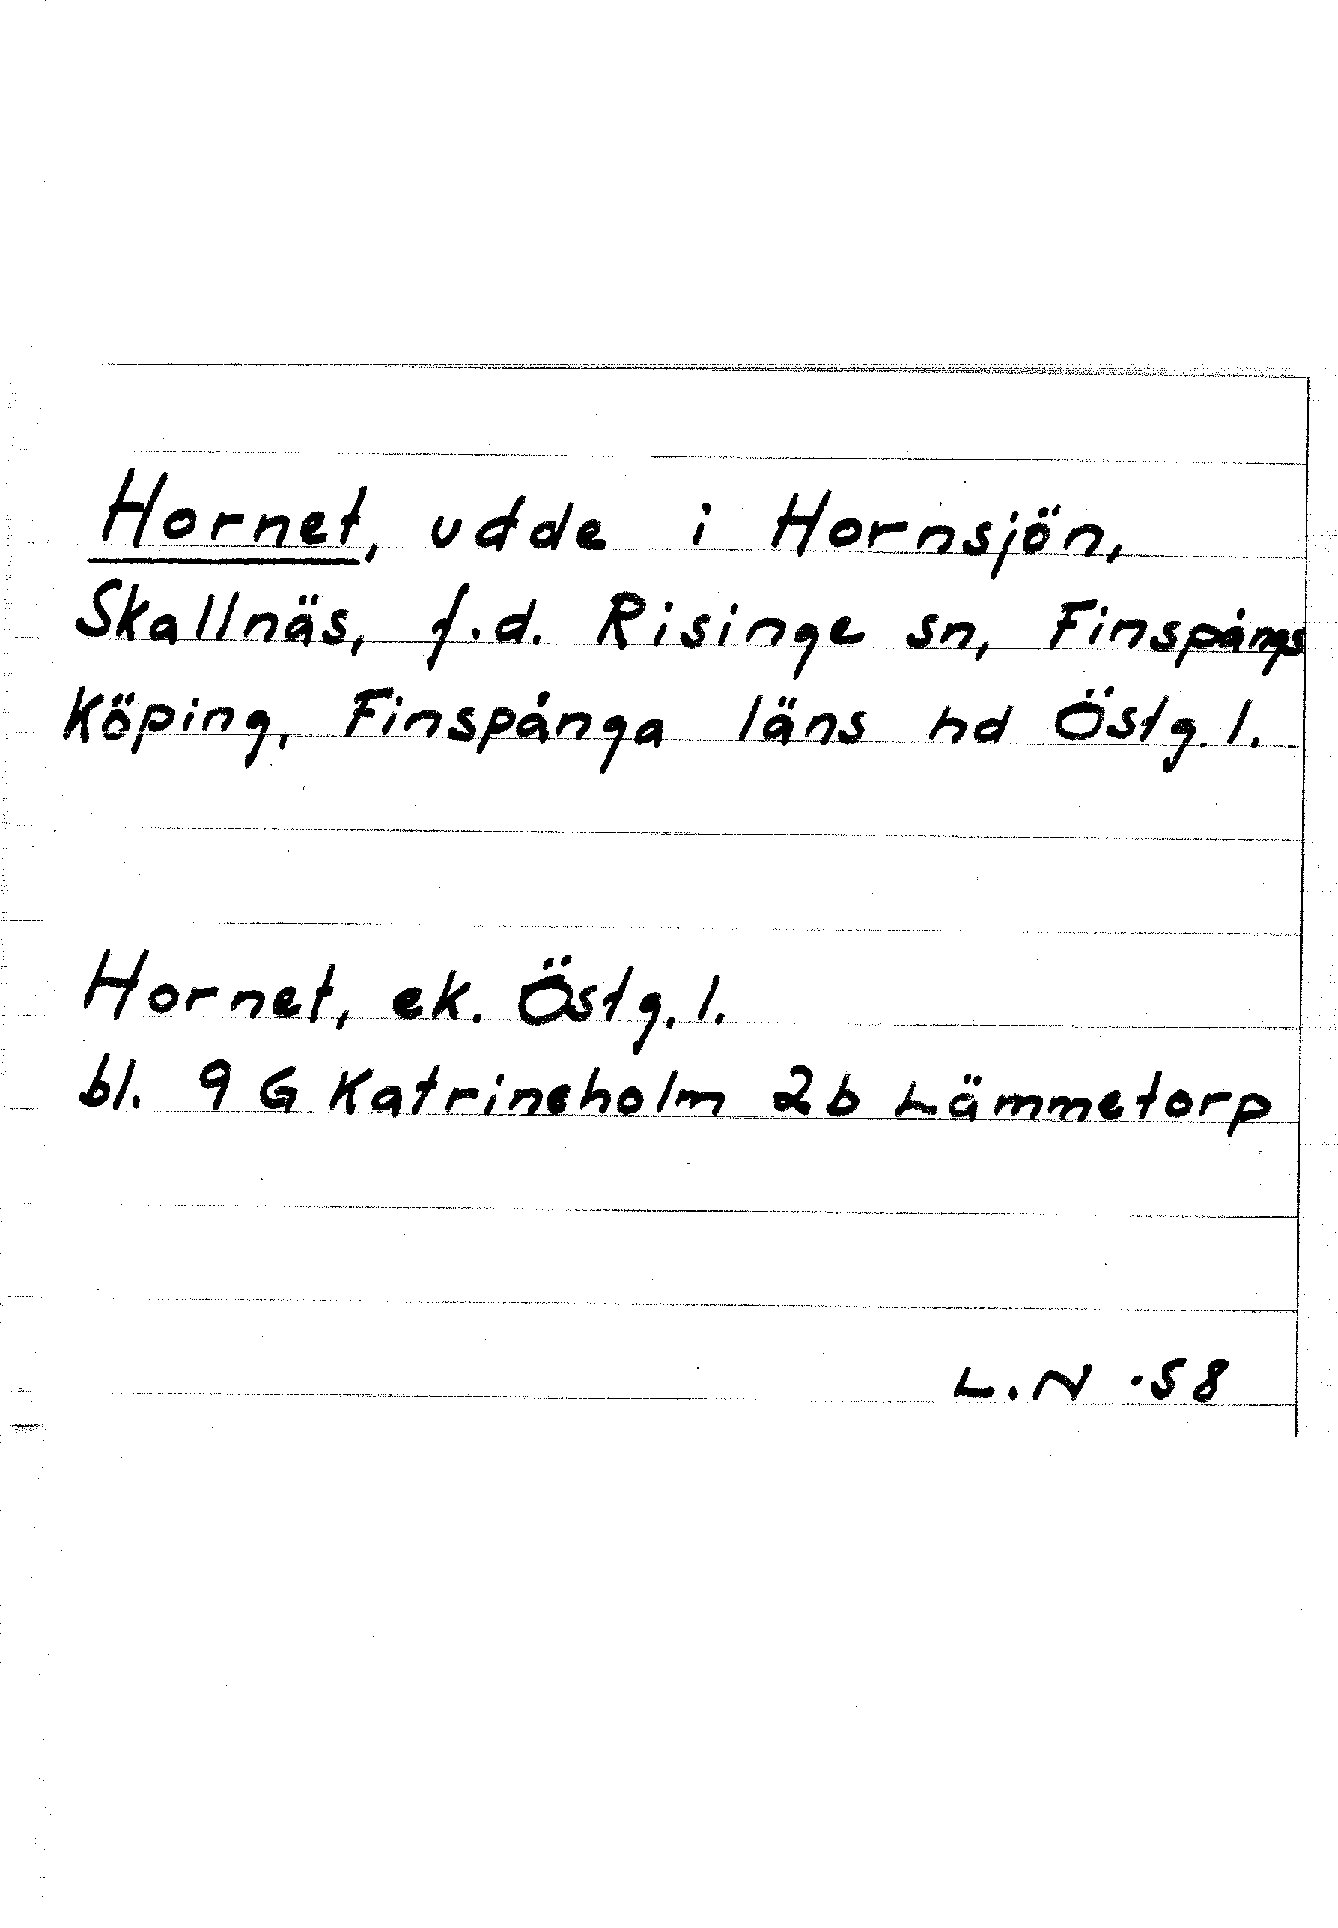 Hornet, udde i Hornsjön,
Skallnäs, f.d. Risinge sn, Finspångs
Köping, Finspånga läns hd Östg.l.
Hornet, ek. Östg.l.
bl. 9 G Katrineholm 2b Lämmetorp
L.N -58